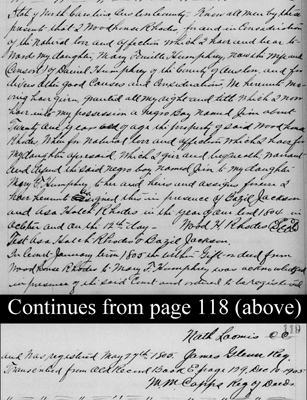 State of North Carolina Onslow County - Know all men by these
presents that I Woodhouse Rhodes, for and in Consideration
of the Natural love and affection which I have and bear to
wards my daughter, Mary Humphrey, now the wife and
Consort of Daniel Humphrey of the County of Onslow, and for
divers other good Causes and Considerations Me hereunto mo
ving have given granted all my right and title which I now
have in to my possession a Negro Boy Named Jim about
Twenty one years of age the property of said Wood house
Rhodes. Now for Natural love and affection which I have for
my daughter aforesaid which I give and bequeath warrant
and defend the said negro boy named Jim to my daughter
Mary F. Humphrey to her and heirs and assigns forever I
have hereunto signed this in presence of Bazil Jackson
and Asa Hatch Rhodes in the year of our Lord 1804 in
October and on the 12th day - Wood H Rhodes Seal
Test Asa Hatch Rhodes & Bazil Jackson.
Onslow County January term 1805 the within Gift or deed from
Wood house Rhodes to Mary F Humphrey was acknowledged
in presence of the said Court and ordered to be registered
Continues from page 118 (above)
119
Nath Loomis CC
and was registered May 27th 1805. James Glenn Reg.
Transcribed from Old Record Book E page 129, Dec 10 1905
M M Capps Reg of Deeds